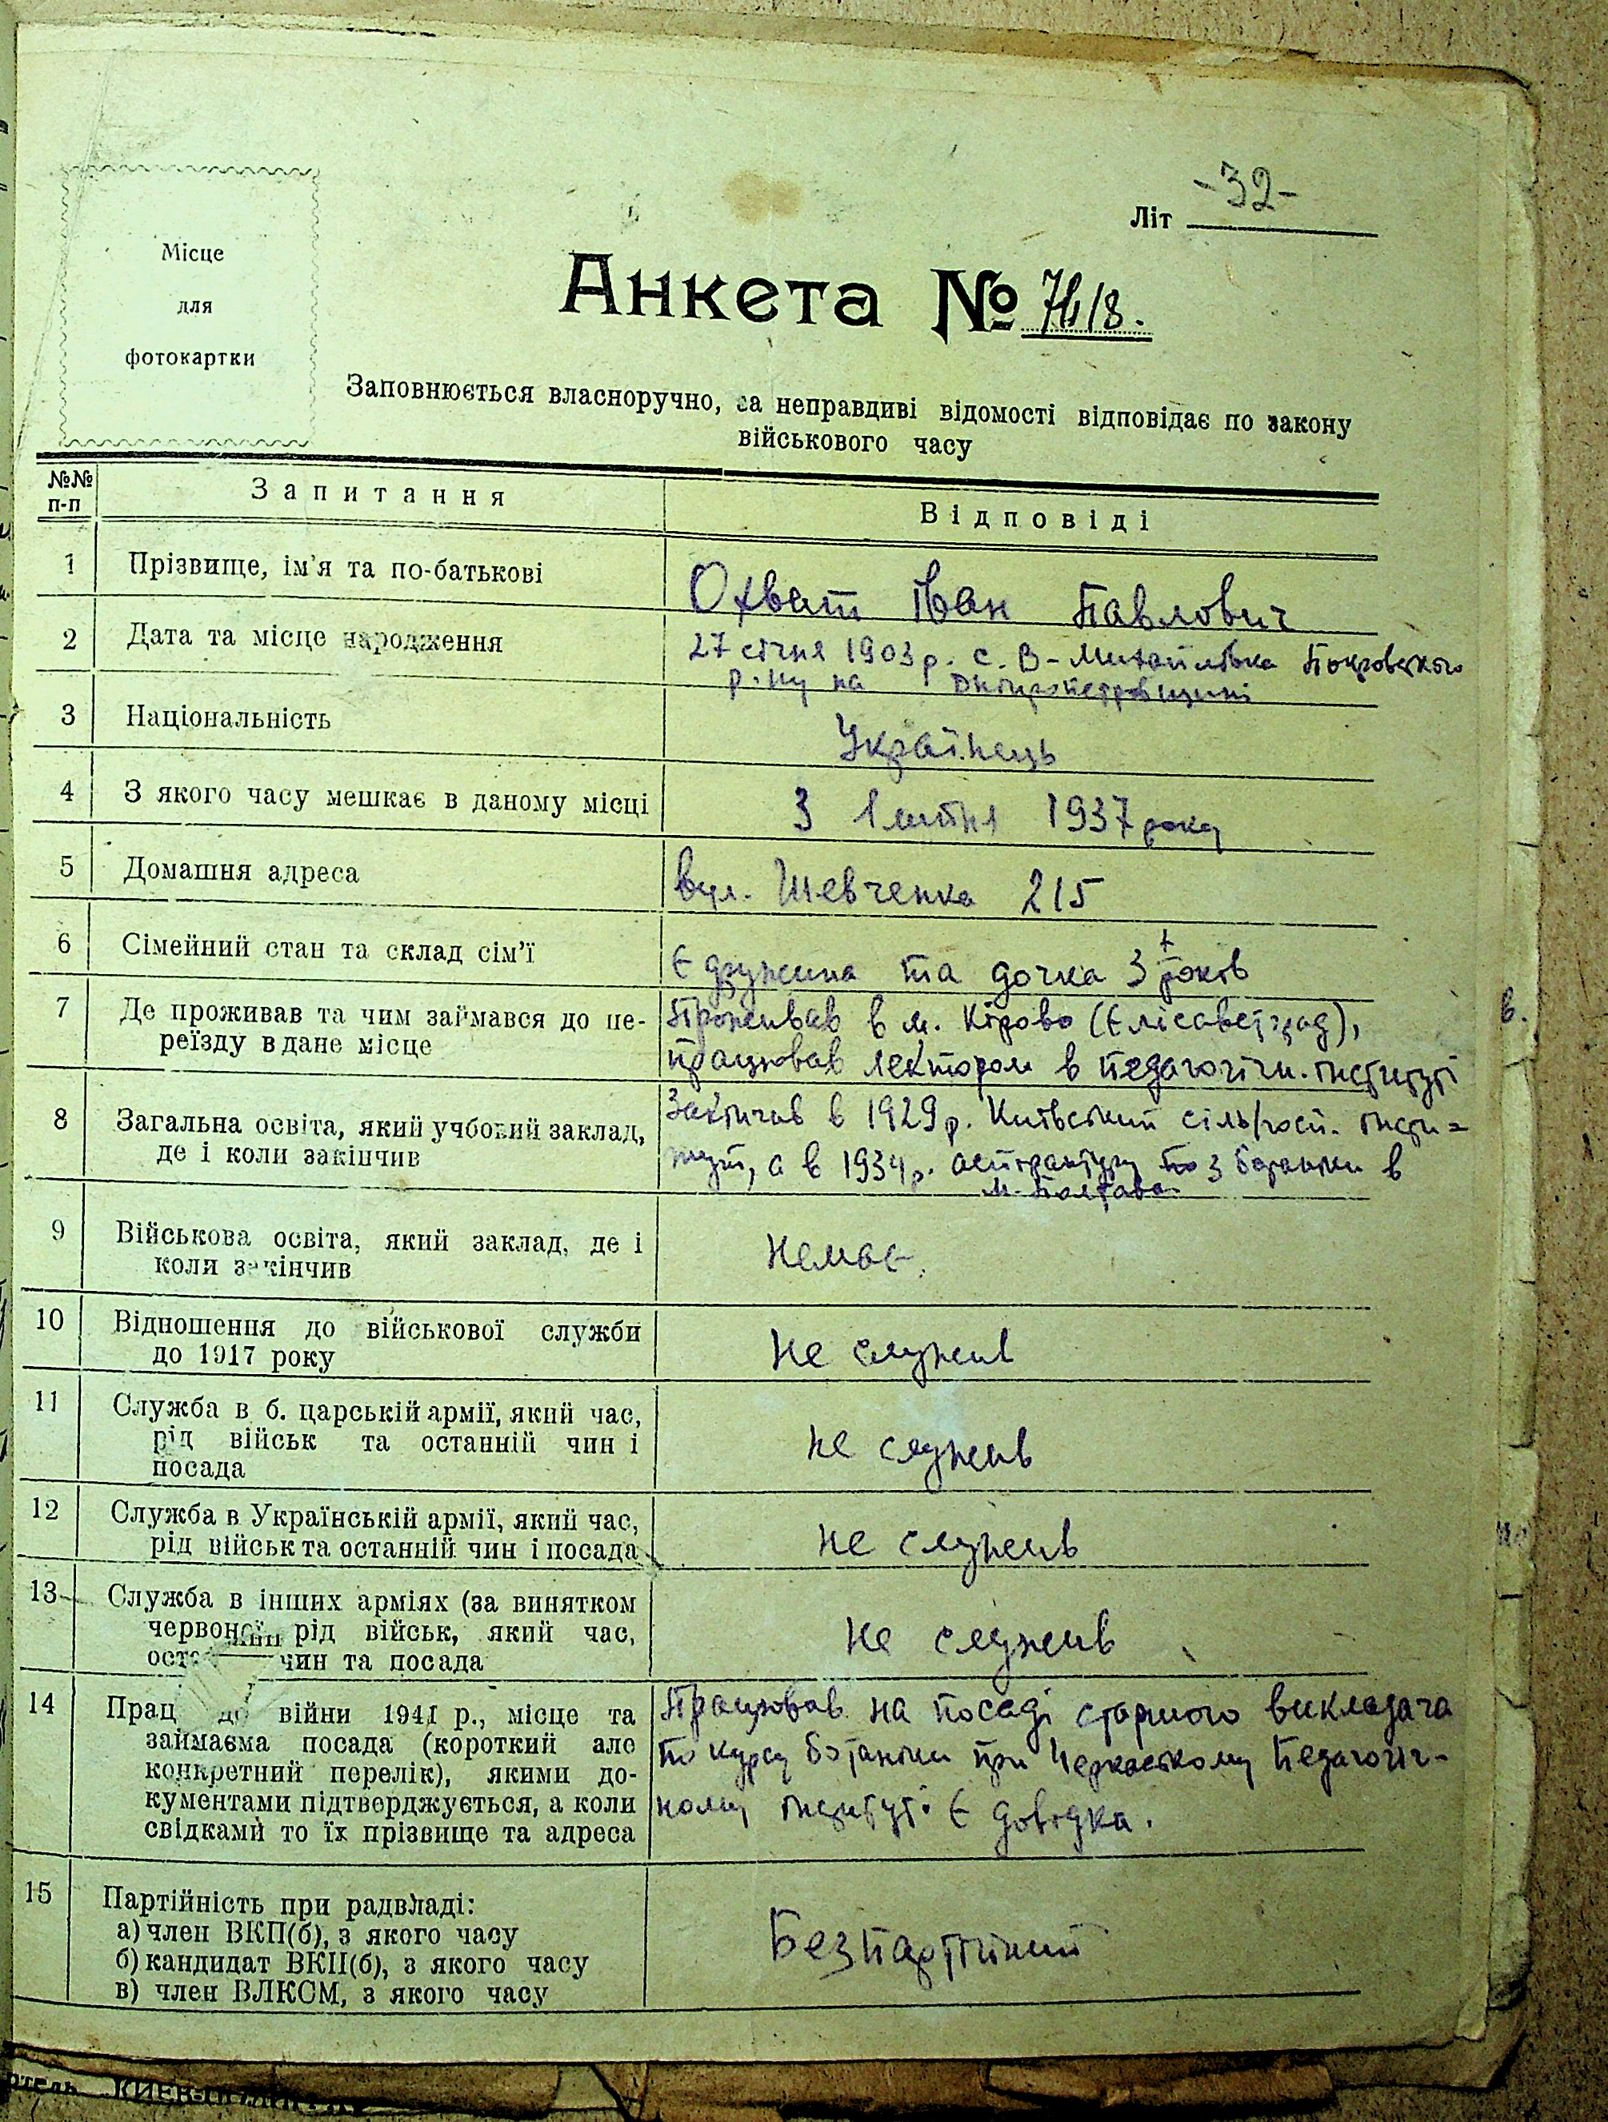 -32-
Літ
Місце
для
фотокартки
Анкета №
Заповнюється власноручно, за неправдиві відомості відповідає по закону
військового часу
№№ п-п
Запитання
Відповіді
1
Прізвище, ім'я та по-батькові
Охват Іван Павлович
2
Дата та місце народження
27 січня 1903 р. с. В-Михайлівка Покровського
р-ну на Дніпропетровщині
3
Національність
Українець
4
З якого часу мешкає в даному місці
З 1 1937 року
5
Домашня адреса
вул. Шевченка 215
6
Сімейний стан та склад сім'ї
Є дружина та дочка 3 років
7
Де проживав та чим займався до пе-
реїзду в дане місце
Проживав в м. Кірово (Єлісаветград),
працював лектором в педагогічн. інституті
8
Загальна освіта, який учбовий заклад,
де і коли закінчив
Закінчив в 1929 р. Київський сіль/госп. інсти=
тут, а в 1934 р. аспірантуру по з ботаніки в
м. Полтава
9
Військова освіта, який заклад, де і
коли закінчив
Немає.
10
Відношення до військової служби
до 1917 року
Не служив
11
Служба в б. царській армії, який час,
рід військ та останній чин і
посада
не служив
12
Служба в Українській армії, який час,
рід військ та останній чин і посада
не служив
13
Служба в інших арміях (за винятком
червоної, рід військ, який час,
чин та посада
Не служив
14
Прац до війни 1941 р., місце та
займаєма посада (короткий але
конкретний перелік), якими до-
кументами підтверджується, а коли
свідками то їх прізвище та адреса
Працював на посаді старшого викладача
по курсу ботаніки при Черкаському Педагогіч-
ному інституті. Є довідка.
15
Партійність при радвладі:
а) член ВКП(б), з якого часу
б) кандидат ВКП(б), з якого часу
в) член ВЛКСМ, з якого часу
Безпартійний